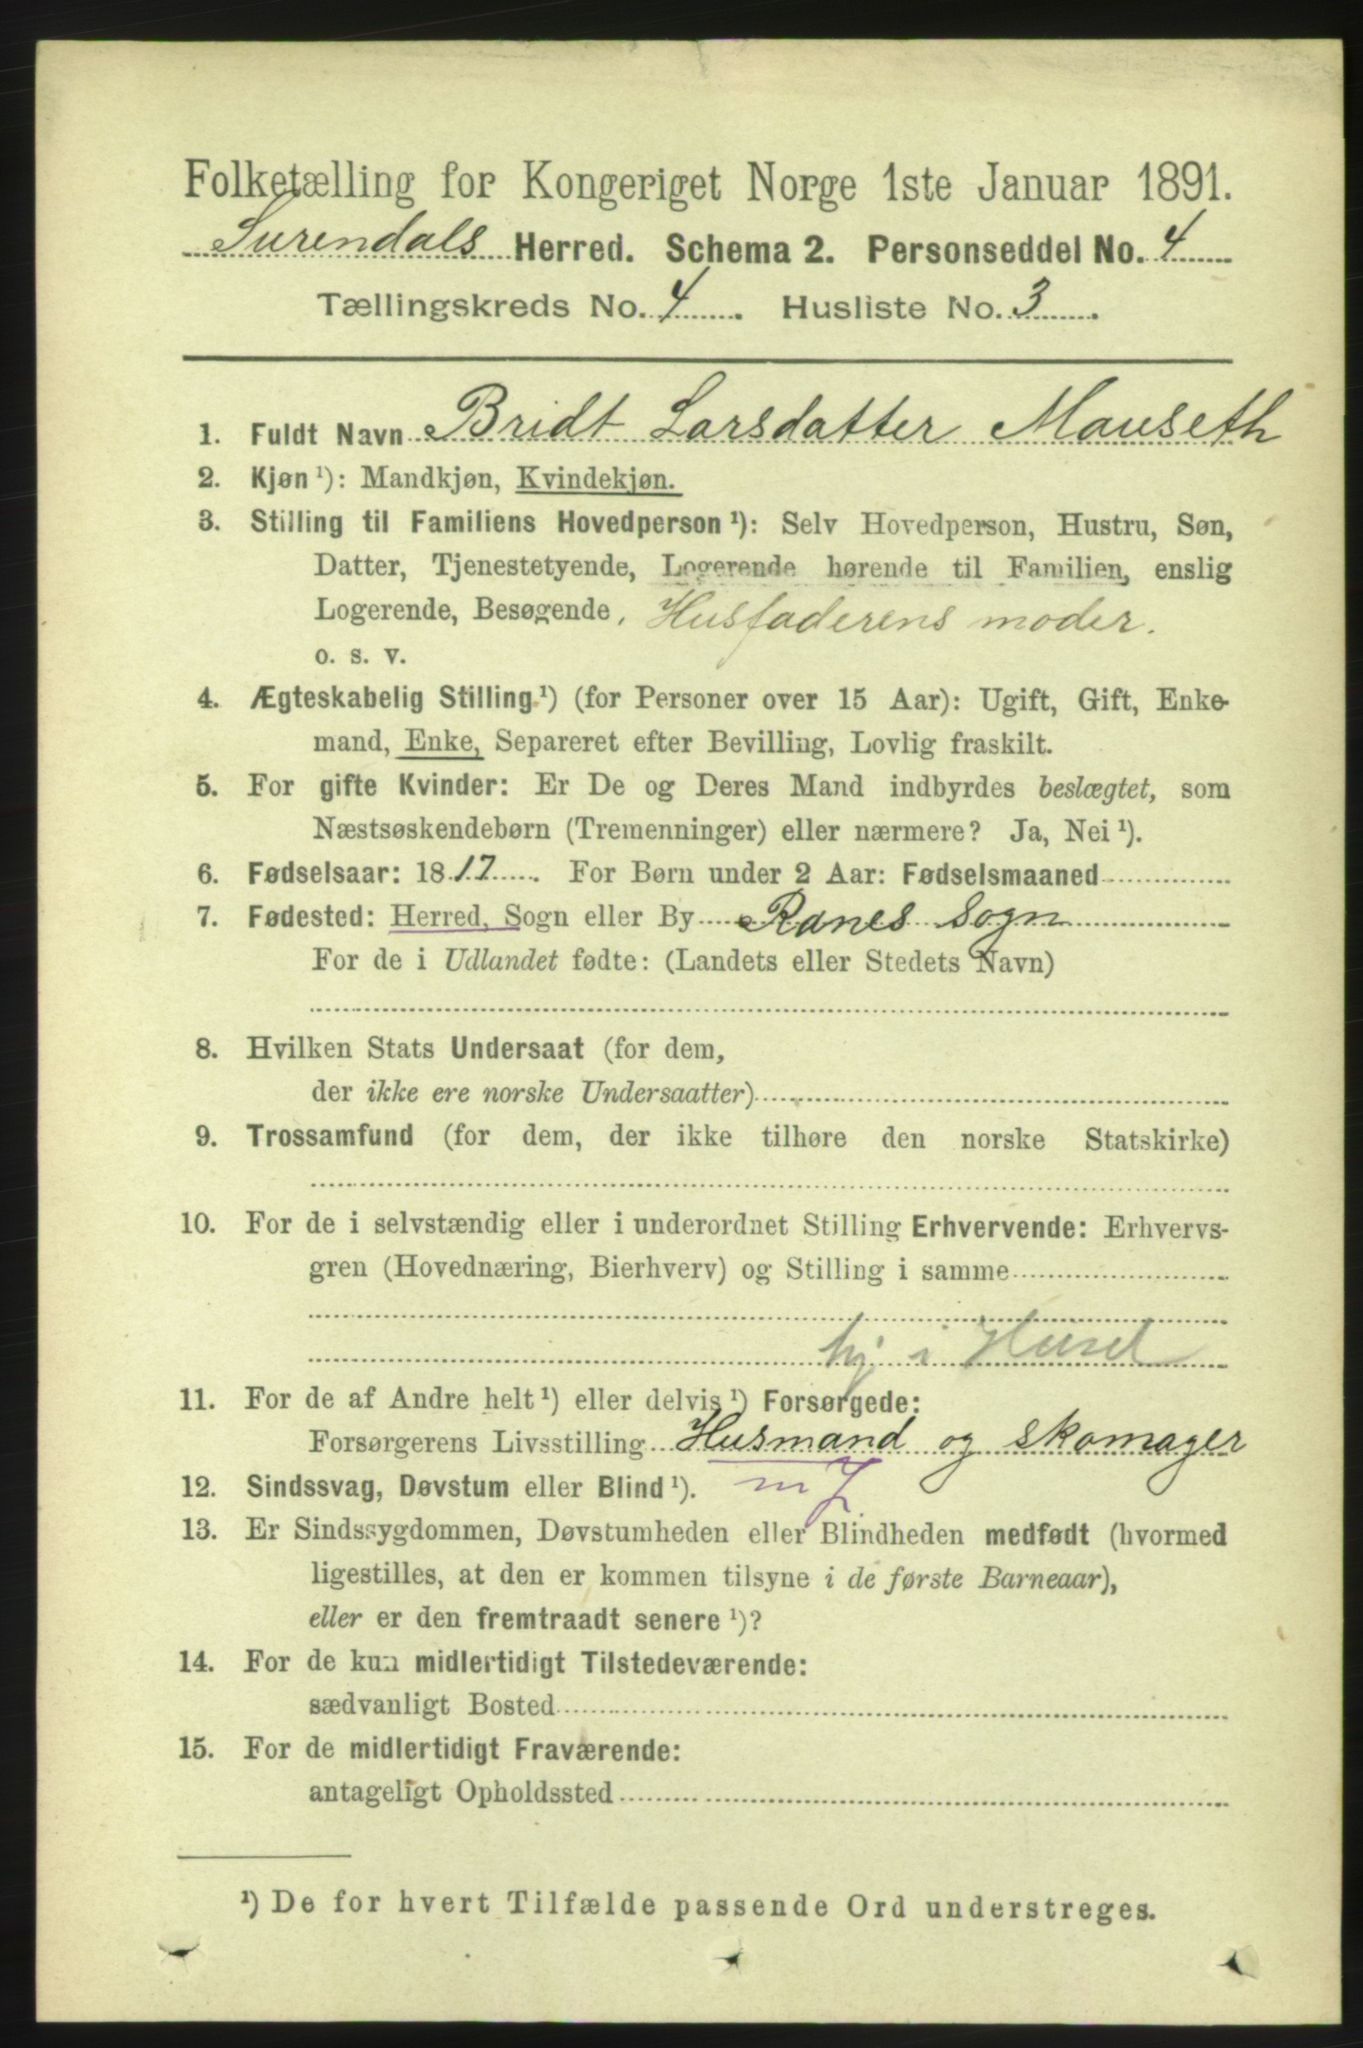 Folketælling for Kongeriget Norge 1ste Januar 1891.
Surendals Herred. Schema 2. Personseddel No. 4
Tællingskreds No. 4. Husliste No. 3.
1. Fuldt Navn Bridt Larsdatter Mauseth
2. Kjøn ¹): Mandkjøn, Kvindekjøn.
3. Stilling til Familiens Hovedperson ¹): Selv Hovedperson, Hustru, Søn,
Datter, Tjenestetyende, Logerende hørende til Familien, enslig
Logerende, Besøgende, Husfaderens moder.
o. s. v.
4. Ægteskabelig Stilling ¹) (for Personer over 15 Aar): Ugift, Gift, Enke-
mand, Enke, Separeret efter Bevilling, Lovlig fraskilt.
5. For gifte Kvinder: Er De og Deres Mand indbyrdes beslægtet, som
Næstsøskendebørn (Tremenninger) eller nærmere? Ja, Nei ¹).
6. Fødselsaar: 1817. For Børn under 2 Aar: Fødselsmaaned
7. Fødested: Herred, Sogn eller By Ranes Sogn
For de i Udlandet fødte: (Landets eller Stedets Navn)
8. Hvilken Stats Undersaat (for dem,
der ikke ere norske Undersaatter)
9. Trossamfund (for dem, der ikke tilhøre den norske Statskirke)
10. For de i selvstændig eller i underordnet Stilling Erhvervende: Erhvervs-
gren (Hovednæring, Bierhverv) og Stilling i samme
hj i Huset
11. For de af Andre helt ¹) eller delvis ¹) Forsørgede:
Forsørgerens Livsstilling Husmand og skomager
12. Sindssvag, Døvstum eller Blind ¹).
13. Er Sindssygdommen, Døvstumheden eller Blindheden medfødt (hvormed
ligestilles, at den er kommen tilsyne i de første Barneaar),
eller er den fremtraadt senere ¹)?
14. For de kun midlertidigt Tilstedeværende:
sædvanligt Bosted
15. For de midlertidigt Fraværende:
antageligt Opholdssted
¹) De for hvert Tilfælde passende Ord understreges.